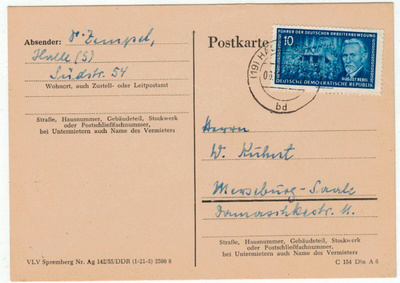 Absender: Dr. Zempel,
Halle (S)
Südstr. 54
Wohnort, auch Zustell- oder Leitpostamt
Straße, Hausnummer, Gebäudeteil, Stockwerk
oder Postschließfachnummer,
bei Untermietern auch Name des Vermieters
VLV Spremberg Nr. Ag 142/55/DDR (I-21-5) 2500 8
Postkarte
(19) HA
09.
bd
FÜHRER DER DEUTSCHEN ARBEITERBEWEGUNG
10
AUGUST BEBEL
DEUTSCHE DEMOKRATISCHE REPUBLIK
Herrn
W. Kuhnt
Merseburg-Saale
Damaschkestr. 11.
Straße, Hausnummer, Gebäudeteil, Stockwerk
oder Postschließfachnummer,
bei Untermietern auch Name des Vermieters
C 154 Din A 6